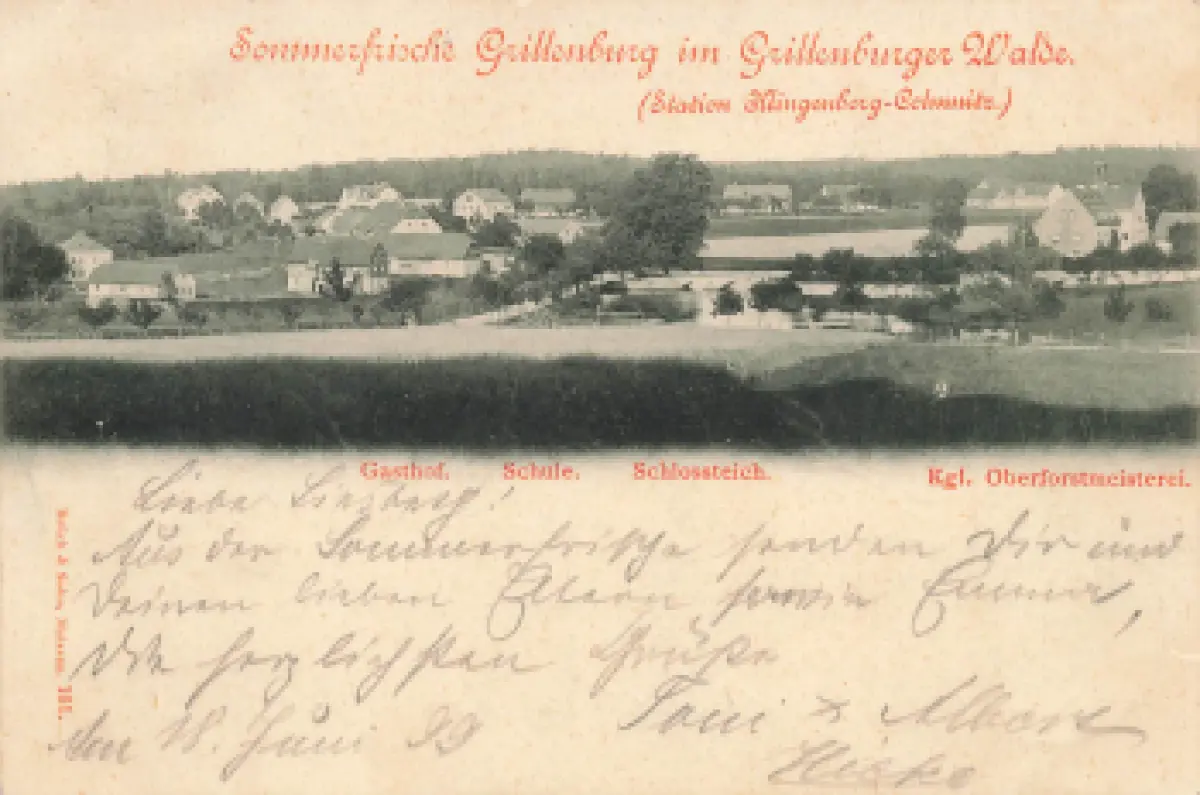 Sommerfrische Grillenburg im Grillenburger Walde.
(Station Klingenberg-Colmnitz.)
Gasthof. Schule. Schlossteich. Kgl. Oberforstmeisterei.
Liebe
Aus der Sommerfrische senden Dir und
Deinen lieben Eltern sowie Emma,
die herzlichsten Grüße
Toni & Albert
den 18. Juni 99